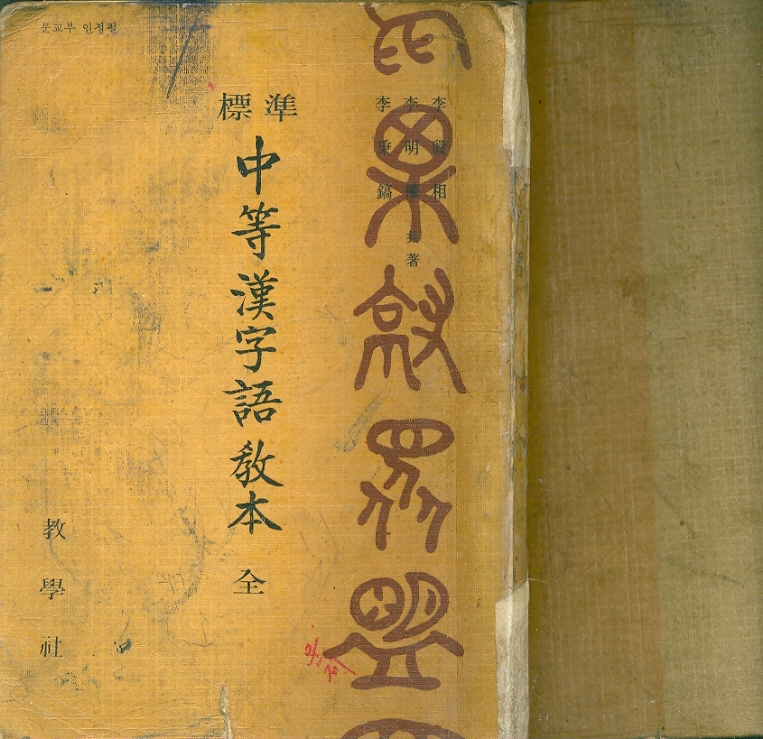 문교부 인정필
李殷相
李明 共著
李 鎬
標準
中等漢字語敎本 全
敎學社